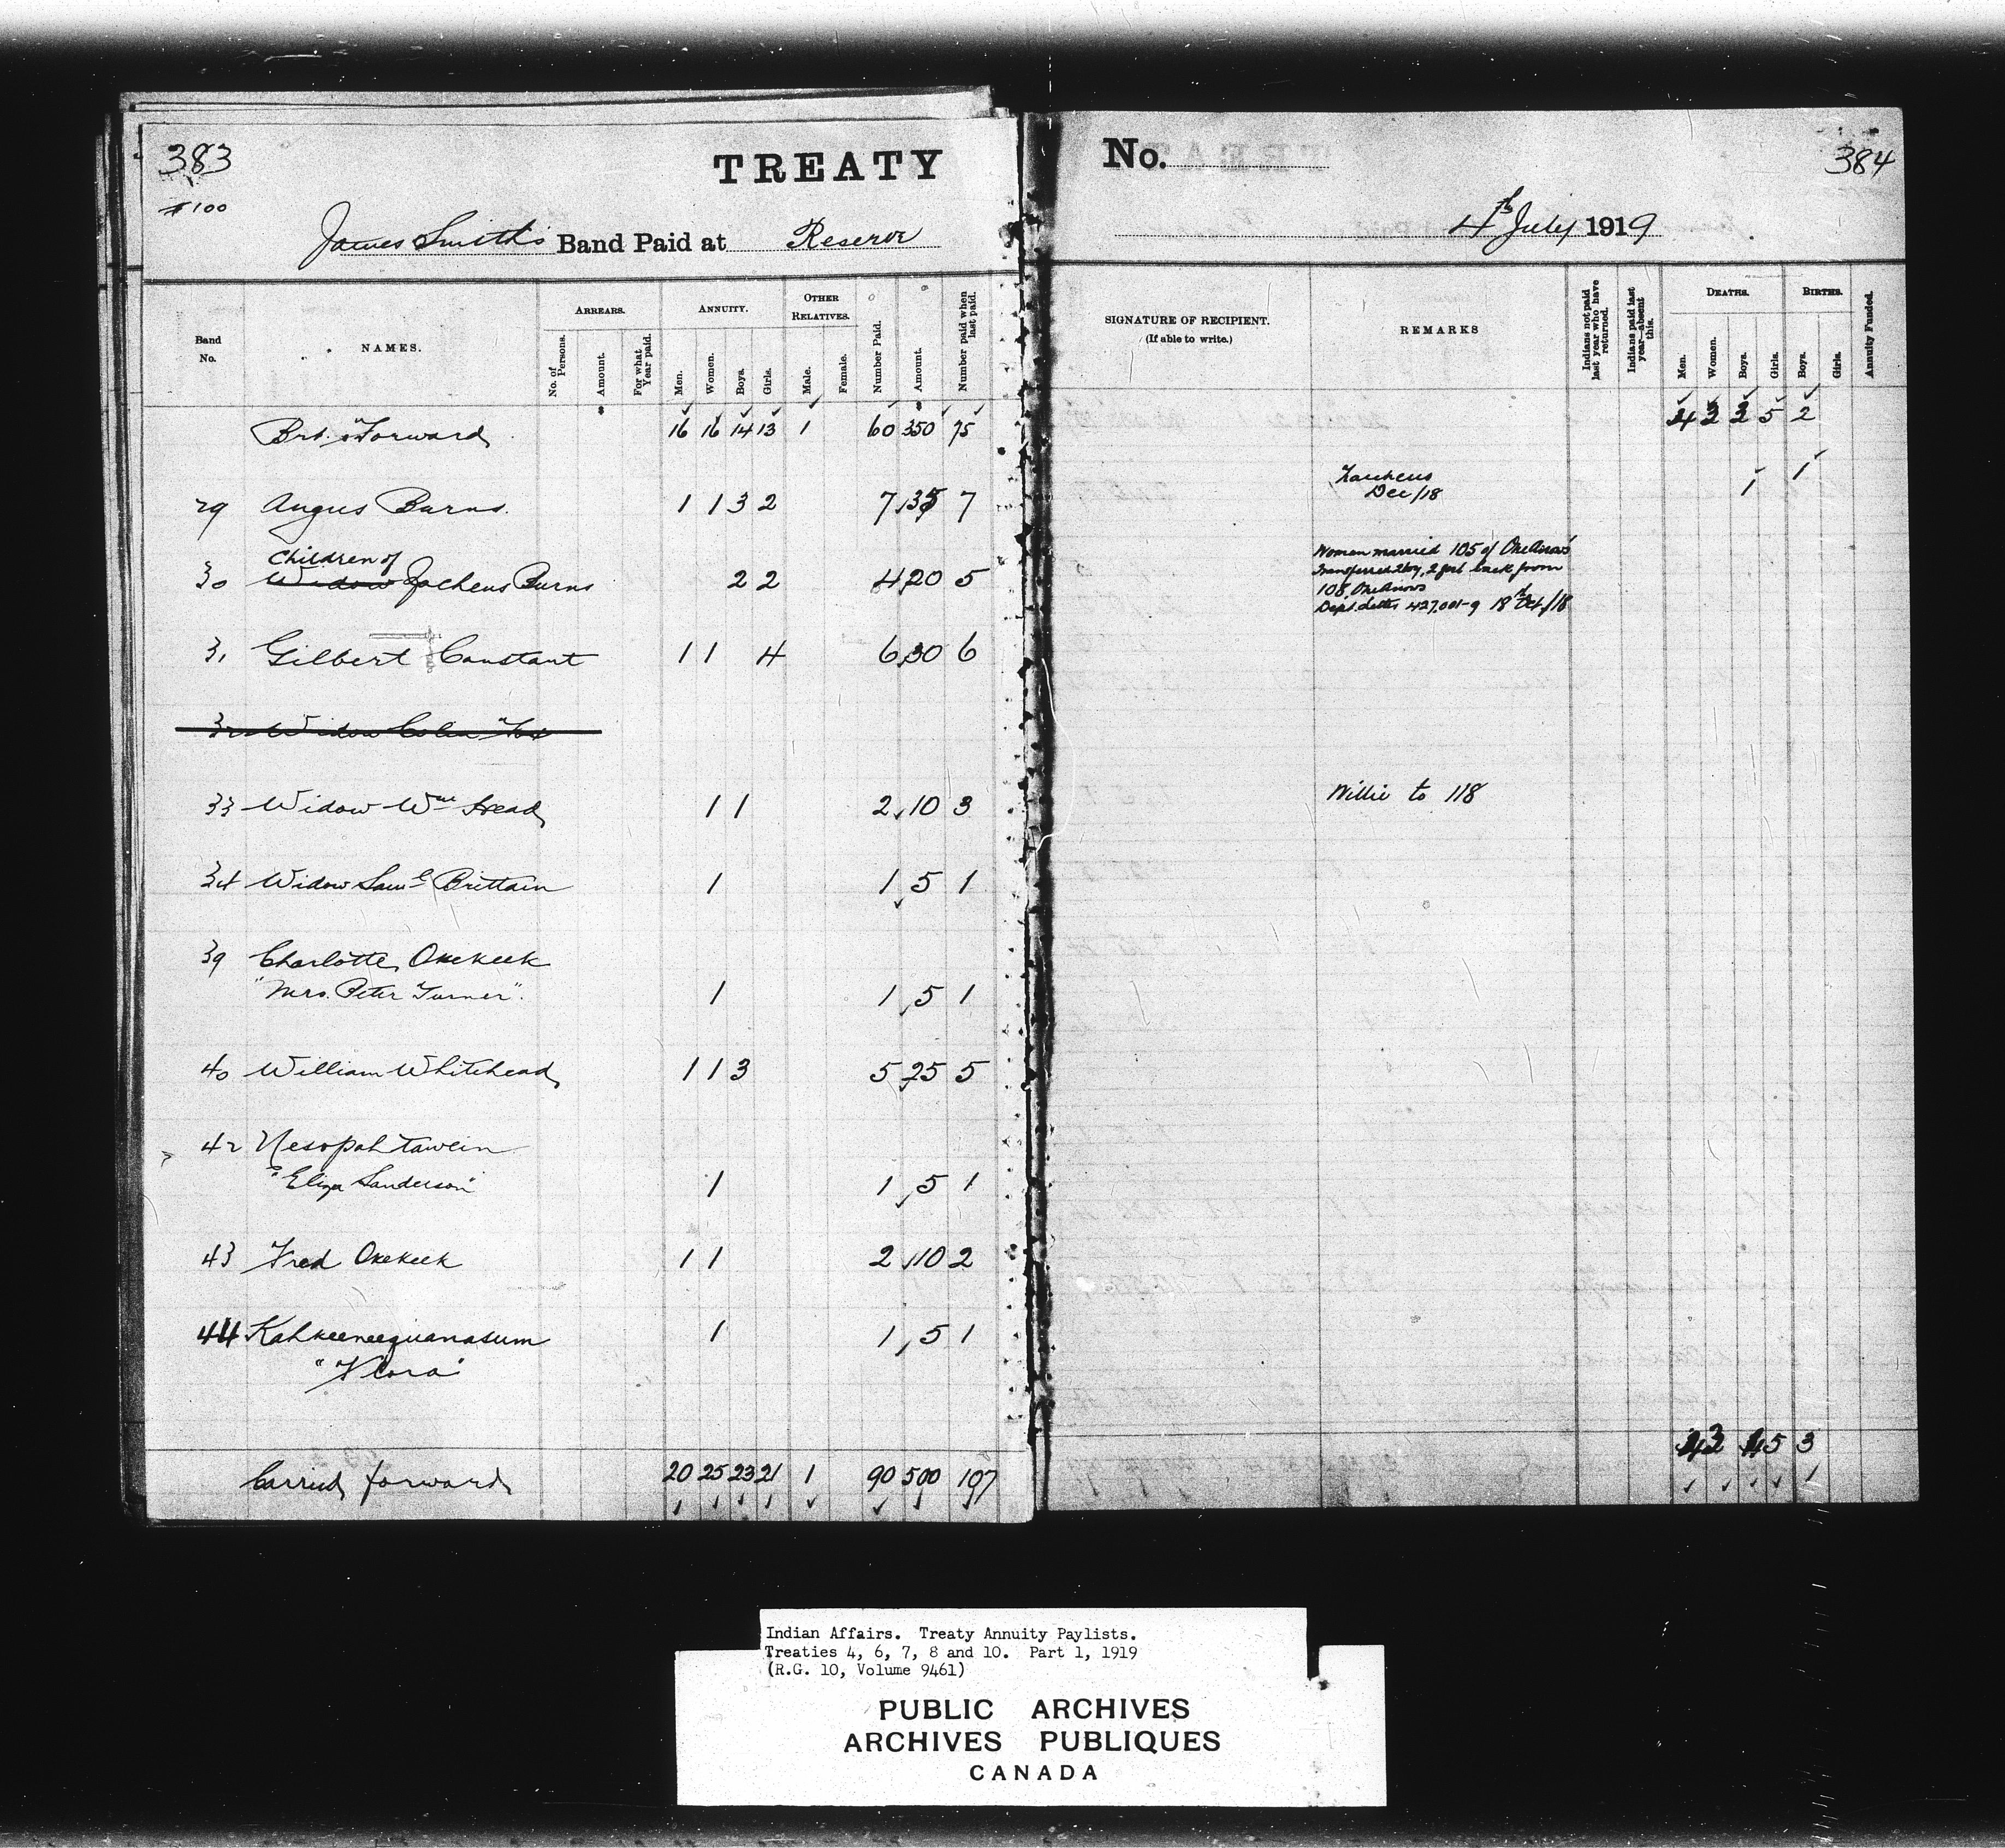 383
TREATY
No.
384
$100
James Smith's Band Paid at Reserve
4th July 1919
Band No.
NAMES.
ARREARS.
No. of Persons.
Amount.
For what Year paid.
ANNUITY.
Men.
Women.
Boys.
Girls.
OTHER RELATIVES.
Male.
Female.
Number Paid.
Amount.
Number paid when last paid.
SIGNATURE OF RECIPIENT.
(If able to write.)
REMARKS
Indians not paid last year who have returned.
Indians paid last year—absent this.
DEATHS.
Men.
Women.
Boys.
Girls.
BIRTHS.
Boys.
Girls.
Annuity Funded.
Brt. Forward 16 16 14 13 1 60 350 75 4 2 5 2
Dec/18
29 Angus Burns. 1 1 3 2 7 35 7 1 1
Children of
30 Widow Jacheus Burns 2 2 4 20 5
Woman married 105 of One Arrow's
Transferred 2 boy, 2 girl back from
108, One Arrows
Dept. letter 427,001-9 18th Oct/18
31 Gilbert Constant 1 1 4 6 30 6
32 Widow Colin Fox
33 Widow Wm Head 1 1 2 10 3 Willie to 118
34 Widow Saml Brittain 1 1 5 1
39 Charlotte Okekeek
"Mrs. Peter Turner". 1 1 5 1
40 William Whitehead 1 1 3 5 25 5
42 Nesopahtawein
"Eliza Sanderson" 1 1 5 1
43 Fred Okekeek 1 1 2 10 2
44 Kahkeeneequanasum 1 1 5 1
"Flora"
Carried forward 20 25 23 21 1 90 500 107 5 3
Indian Affairs. Treaty Annuity Paylists.
Treaties 4, 6, 7, 8 and 10. Part 1, 1919
(R.G. 10, Volume 9461)
PUBLIC ARCHIVES
ARCHIVES PUBLIQUES
CANADA